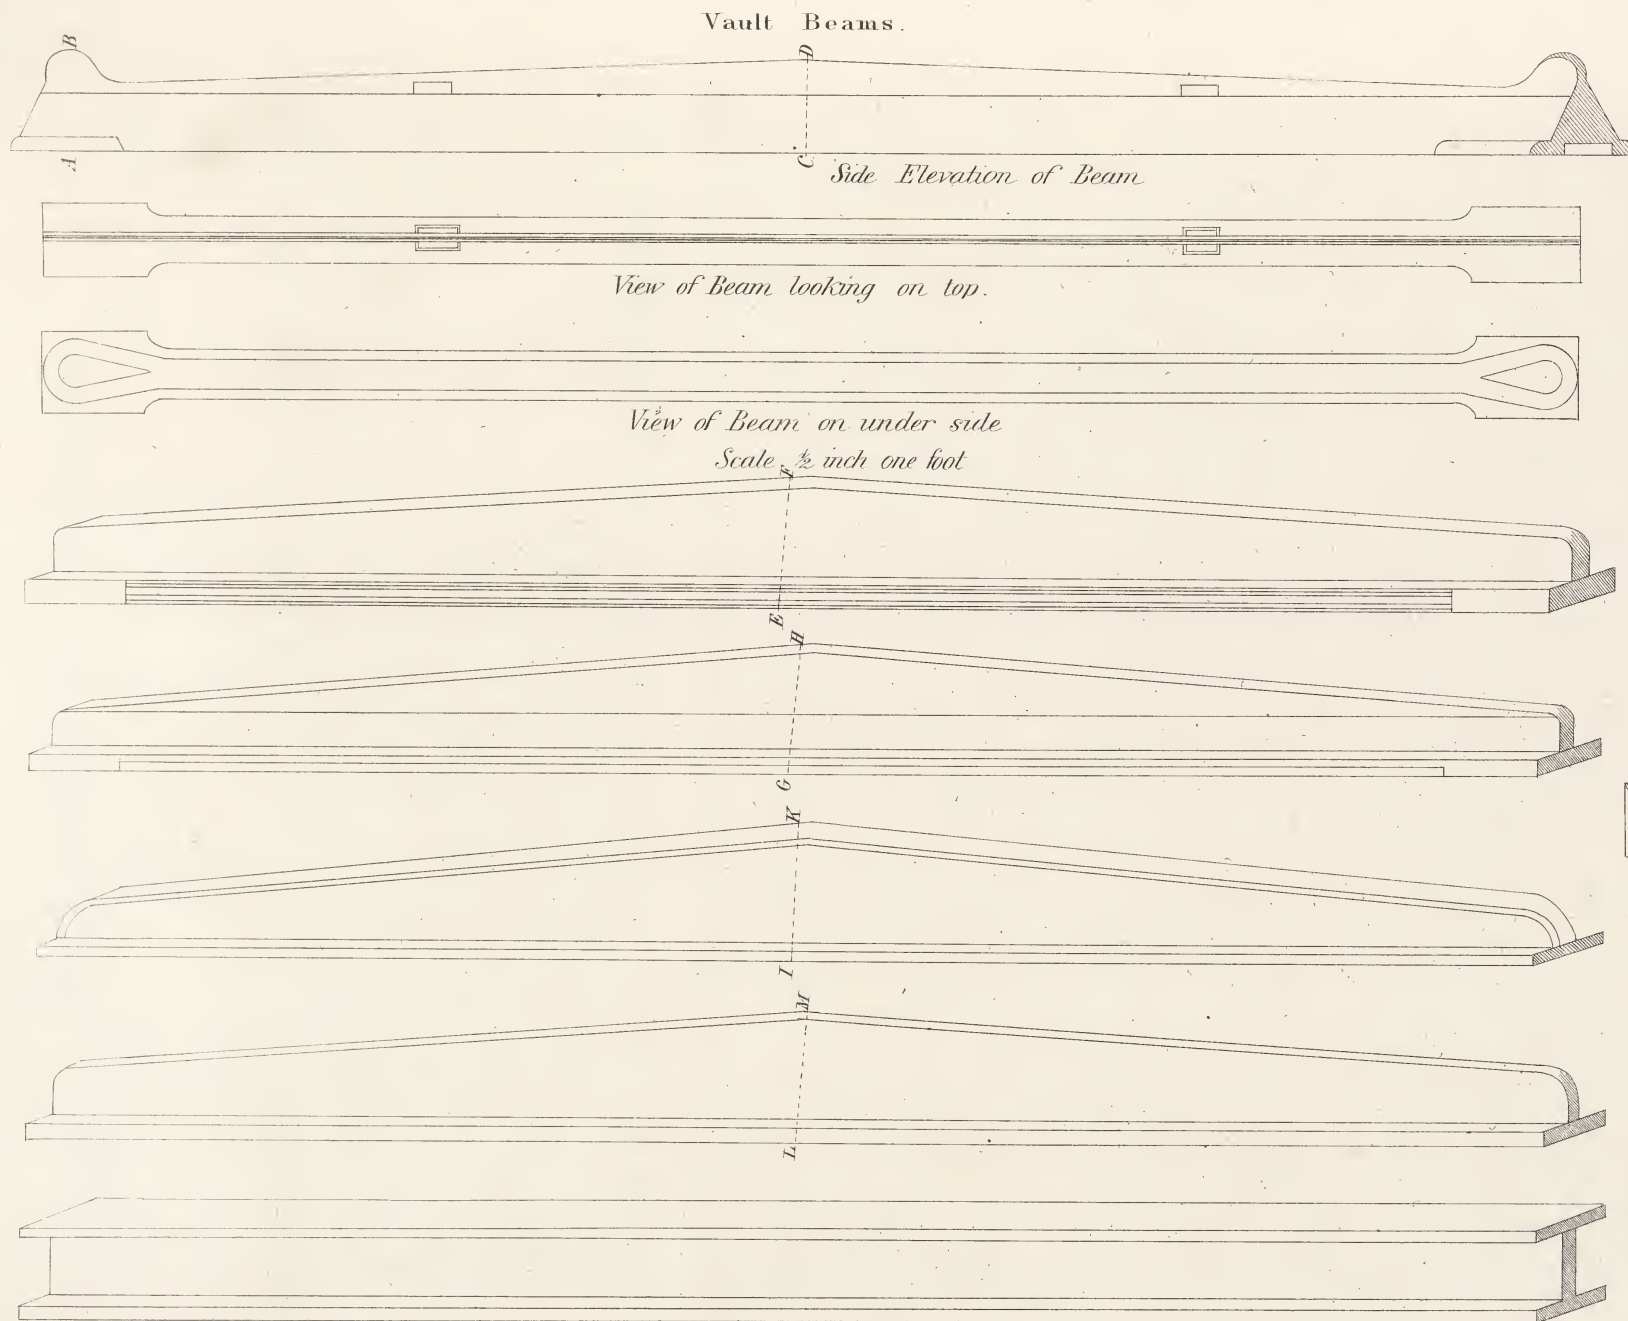 Vault Beams.
B
D
A
C
Side Elevation of Beam
View of Beam looking on top.
View of Beam on under side
Scale ½ inch one foot
F
E
H
G
K
I
M
L